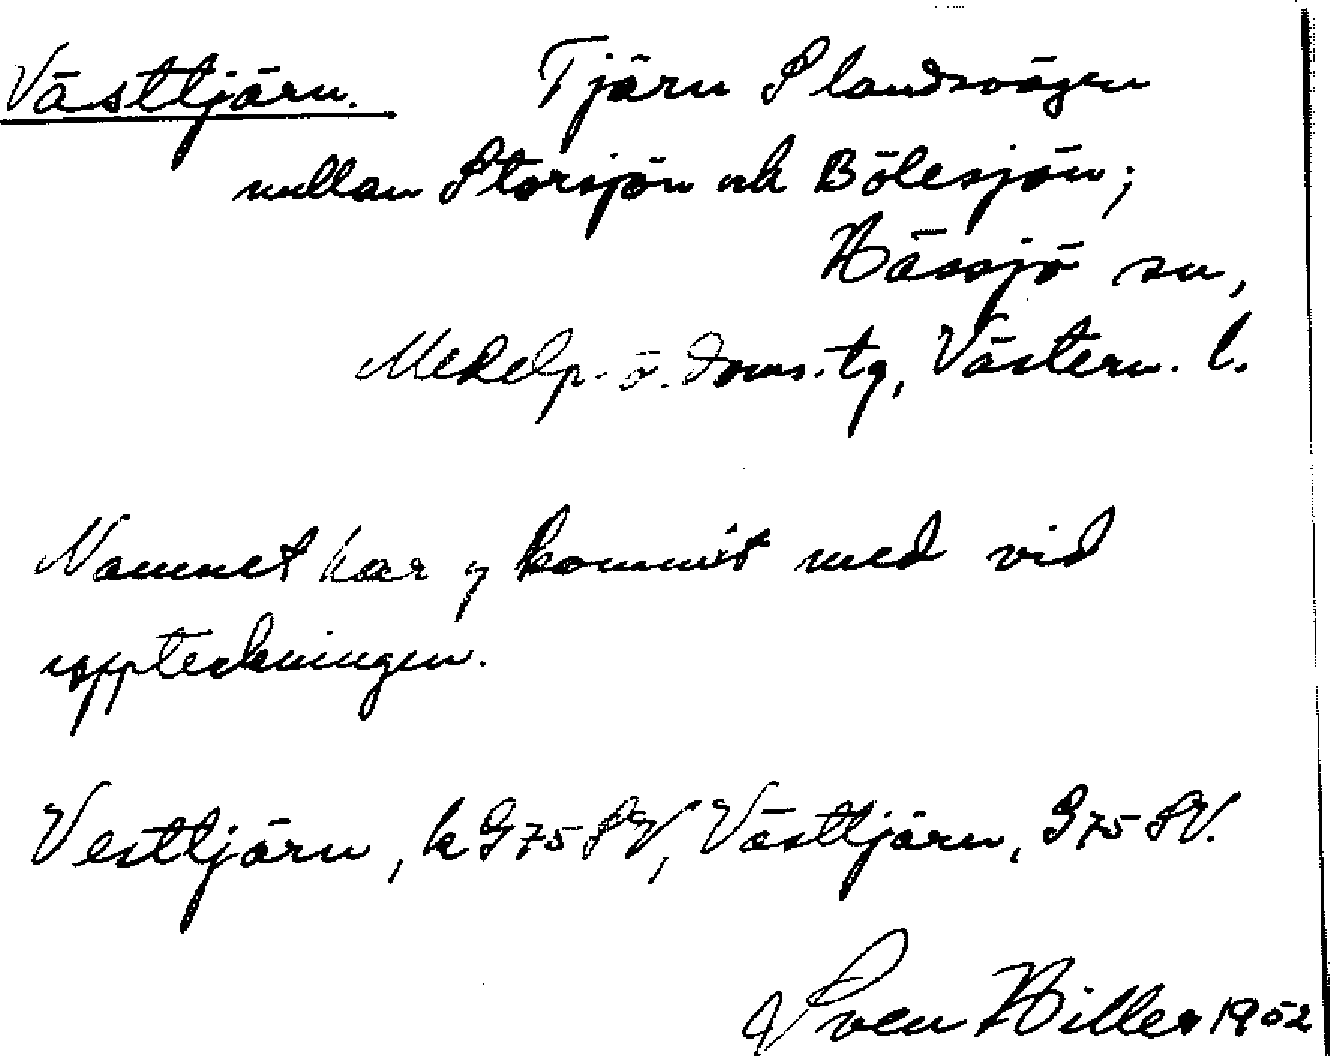 Västtjärn. Tjärn S landsvägen
mellan Storsjön och Bölesjön;
Hässjö sn,
Medelp. ö. doms. tg, Västern. l.
Namnet har ej kommit med vid
uppteckningen.
Vesttjärn, k G75 SV, Västtjärn, G75 SV.
Sven Hiller 1952